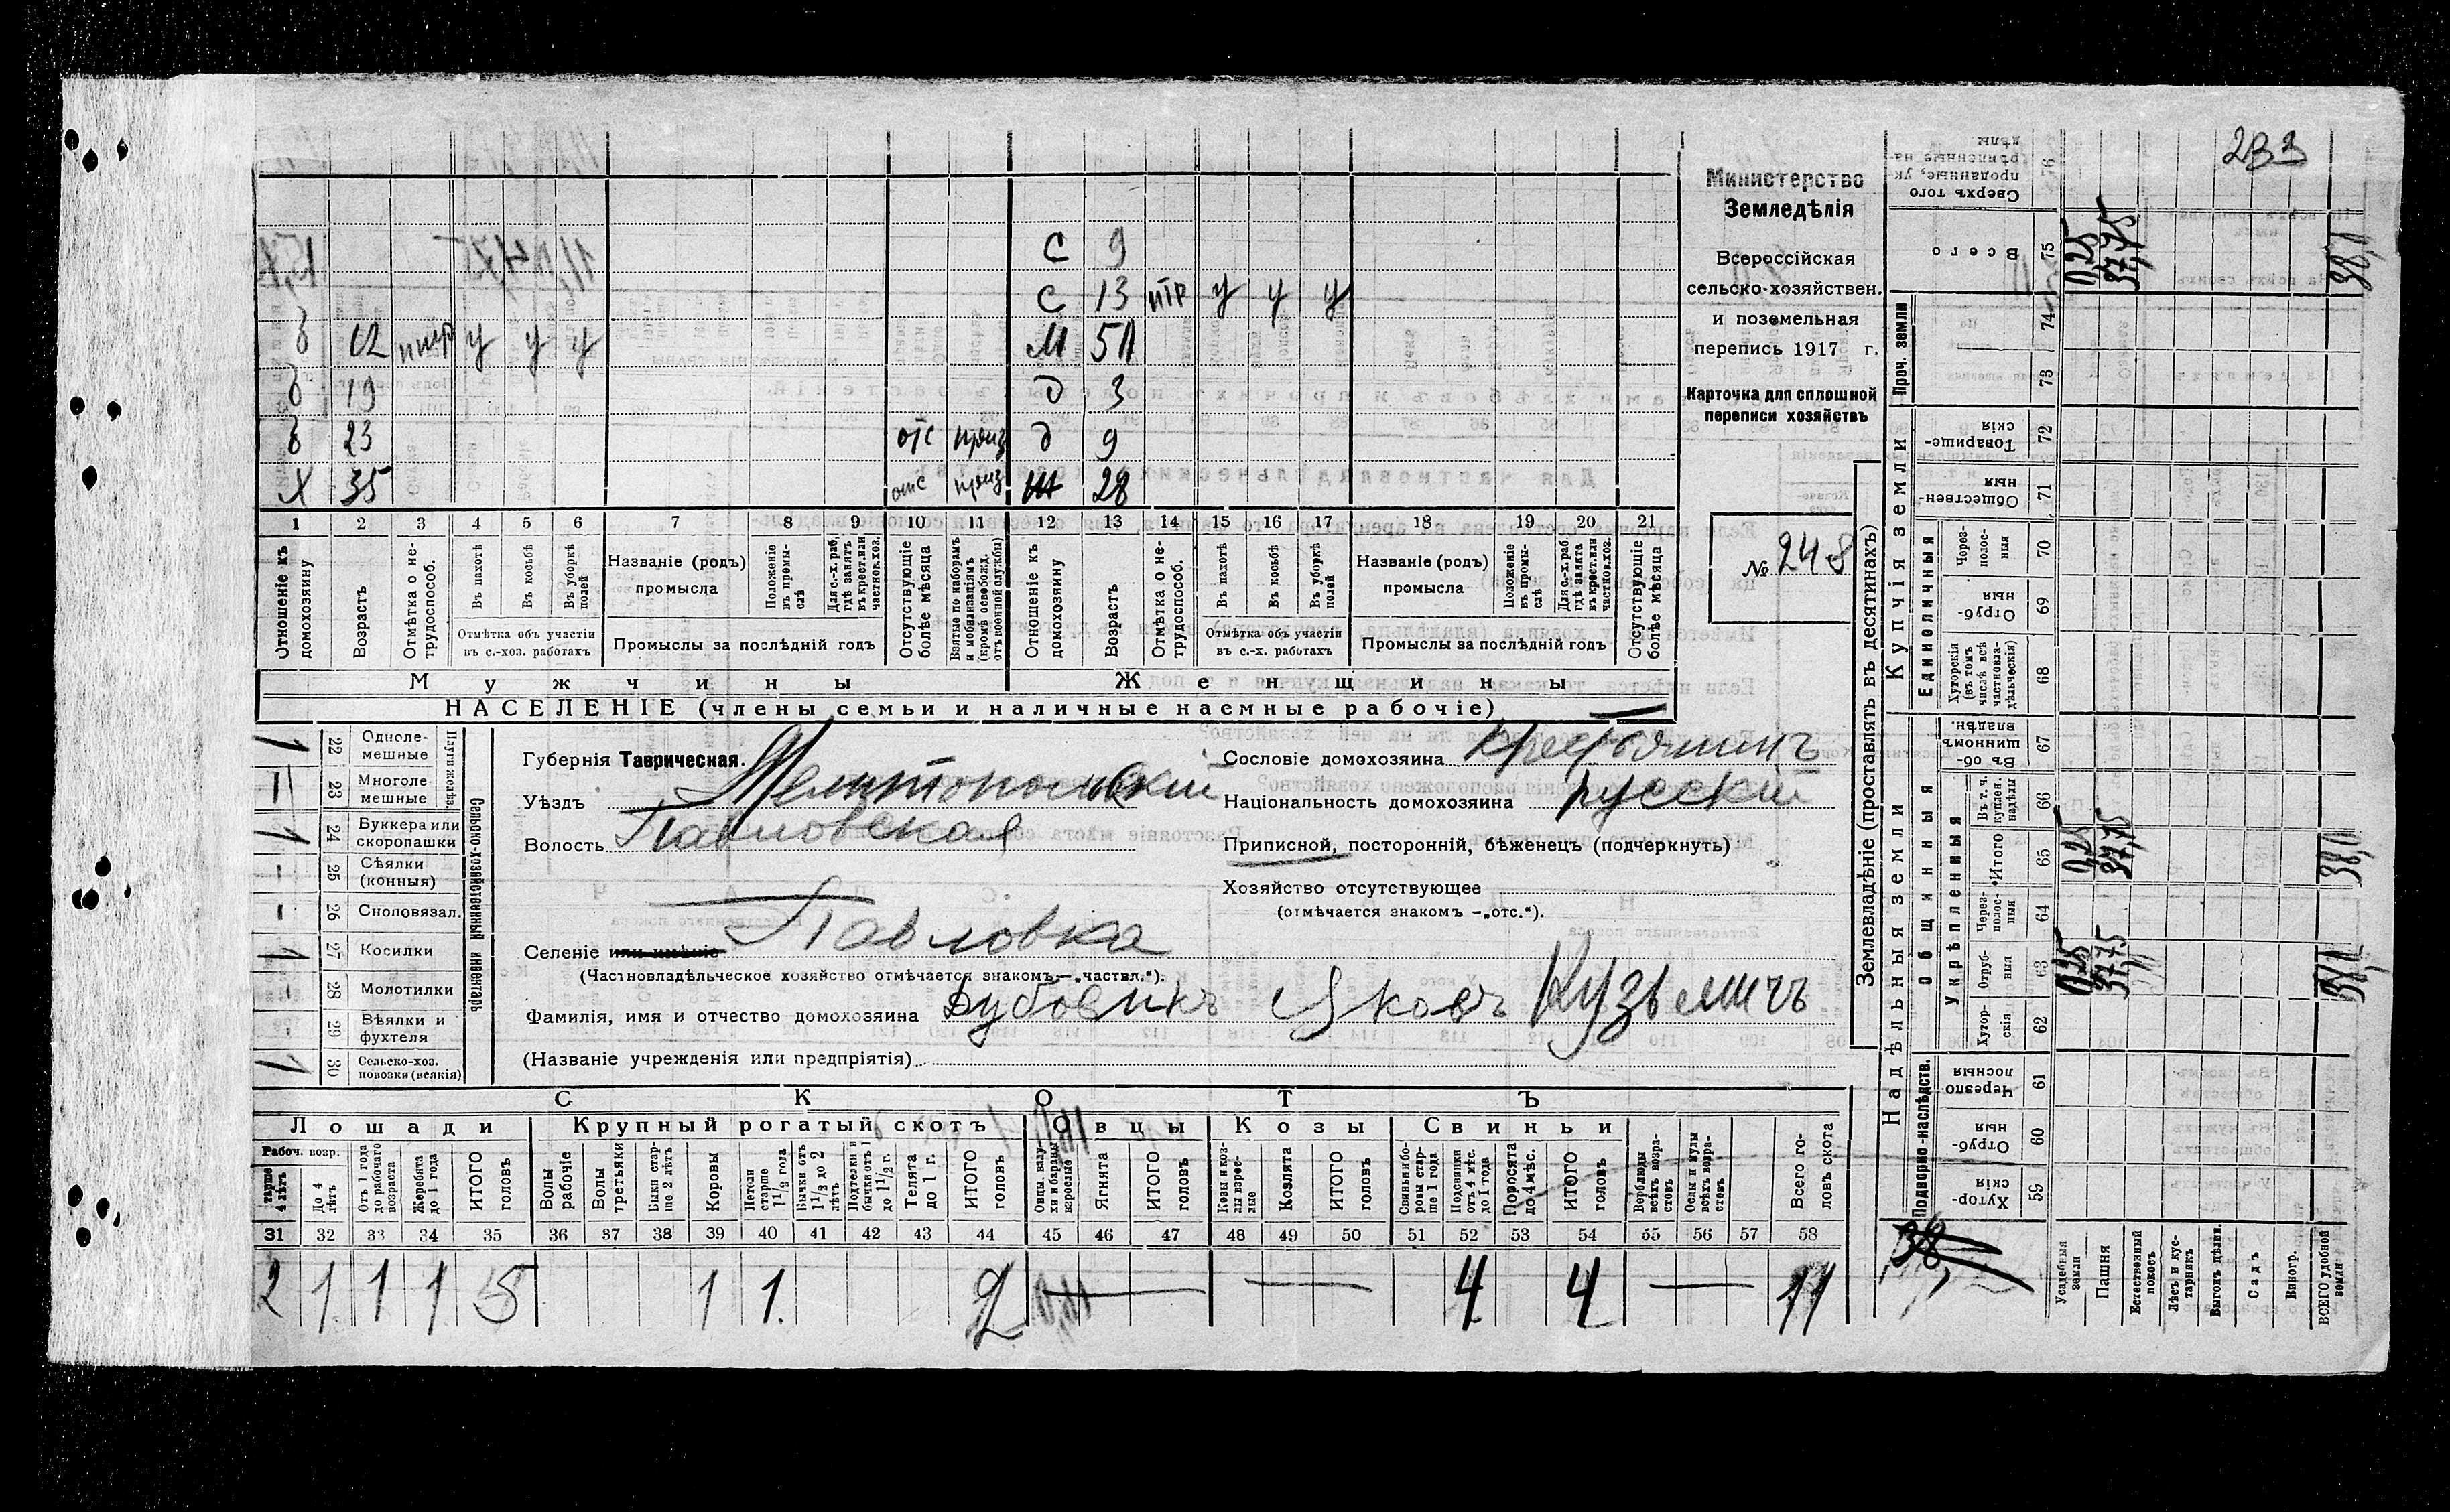 233
Министерство
Земледѣлія
Всероссійская
сельско-хозяйствен.
и поземельная
перепись 1917 г.
Карточка для сплошной
переписи хозяйствъ
№ 248
С 9
С 13 у у у
б 12 у у у
М 51
б 19
д 3
б 23 отс призв
д 9
Х 35 отс призв
28
1 2 3 4 5 6 7 8 9 10 11 12 13 14 15 16 17 18 19 20 21
Отношеніе къ домохозяину
Возрастъ
Отмѣтка о не-трудоспособ.
Въ пахотѣ
Въ косьбѣ
Въ уборкѣ полей
Отмѣтка объ участіи въ с.-хоз. работахъ
Названіе (родъ) промысла
Положеніе въ промы-слѣ
Для с.-х. раб. гдѣ занятъ въ крест. или частнов. хоз.
Промыслы за послѣдній годъ
Отсутствующіе болѣе мѣсяца
Взятые по наборамъ и мобилизаціямъ (кромѣ освобожд. отъ военной службы)
Отношеніе къ домохозяину
Возрастъ
Отмѣтка о не-трудоспособ.
Въ пахотѣ
Въ косьбѣ
Въ уборкѣ полей
Отмѣтка объ участіи въ с.-х. работахъ
Названіе (родъ) промысла
Положеніе въ промы-слѣ
Для с.-х. раб. гдѣ занята въ крест. или частнов. хоз.
Промыслы за послѣдній годъ
Отсутствующіе болѣе мѣсяца
Мужчины Женщины
НАСЕЛЕНІЕ (члены семьи и наличные наемные рабочіе)
Губернія Таврическая.
Уѣздъ Мелитопольскій
Волость Павловская
Селеніе или имѣніе Павловка
(Частновладѣльческое хозяйство отмѣчается знакомъ—„частвл.“).
Фамилія, имя и отчество домохозяина Дубовикъ Яковъ Кузьмичъ
(Названіе учрежденія или предпріятія)
Сословіе домохозяина крестьянинъ
Національность домохозяина русскій
Приписной, посторонній, бѣженецъ (подчеркнуть)
Хозяйство отсутствующее
(отмѣчается знакомъ —„отс.“).
Сельско-хозяйственный инвентарь
Плуги желѣз.
1 22 Одноле-мешные
23 Многоле-мешные
1 24 Буккера или скоропашки
- 25 Сѣялки (конныя)
- 26 Сноповязал.
1 27 Косилки
- 28 Молотилки
- 29 Вѣялки и фухтеля
1 30 Сельско-хоз. повозки (всякія)
СКОТЪ
Лошади Крупный рогатый скотъ Овцы Козы Свиньи
Рабоч. возр.
Старше 4 лѣтъ
До 4 лѣтъ
Отъ 1 года до рабочаго возраста
Жеребята до 1 года
ИТОГО головъ
Волы рабочіе
Волы третьяки
Быки стар-ше 2 лѣтъ
Коровы
Нетели старше 1 1/2 года
Бычки отъ 1 1/2 до 2 лѣтъ
Подтелки и бычки отъ 1 до 1 1/2 г.
Телята до 1 г.
ИТОГО головъ
Овцы, валу-хи и бараны взрослые
Ягнята
ИТОГО головъ
Козы и коз-лы взрос-лые
Козлята
ИТОГО головъ
Свиньи и бо-ровы стар-ше 1 года
Подсвинки отъ 4 мѣс. до 1 года
Поросята до 4 мѣс.
ИТОГО головъ
Верблюды всѣхъ возра-стовъ
Ослы и мулы всѣхъ возра-стовъ
Всего го-ловъ скота
31 32 33 34 35 36 37 38 39 40 41 42 43 44 45 46 47 48 49 50 51 52 53 54 55 56 57 58
2 1 1 1 5 1 1. 2 — — 4 4 — 11
Землевладѣніе (проставлять въ десятинахъ)
Надѣльныя земли Купчія земли Проч. земли
Подворно-наслѣдств.
Общинныя
Укрѣпленныя
Единоличныя
59 Хутор-скія
60 Отруб-ныя
61 Черезпо-лосныя
62 Хутор-скія
63 Отруб-ныя 0,25 37,75 38,0
64 Через-полос-ныя
65 Итого 0,25 37,75 38,0
66 Въ т. ч. куплен. надѣлы
67 Въ об-щинномъ владѣн.
68 Хуторскія (въ томъ числѣ всѣ частновла-дѣльческія)
69 Отруб-ныя
70 Через-полос-ныя
71 Обществен-ныя
72 Товарище-скія
73
74
75 Всего 0,25 37,75 38,0
76 Сверхъ того проданные, ук-рѣпленные на-дѣлы
38
Усадебныя земли
Пашня
Естественный покосъ
Лѣсъ и кус-тарникъ
Выгонъ дѣлин.
Садъ
Виногр.
ВСЕГО удобной земли